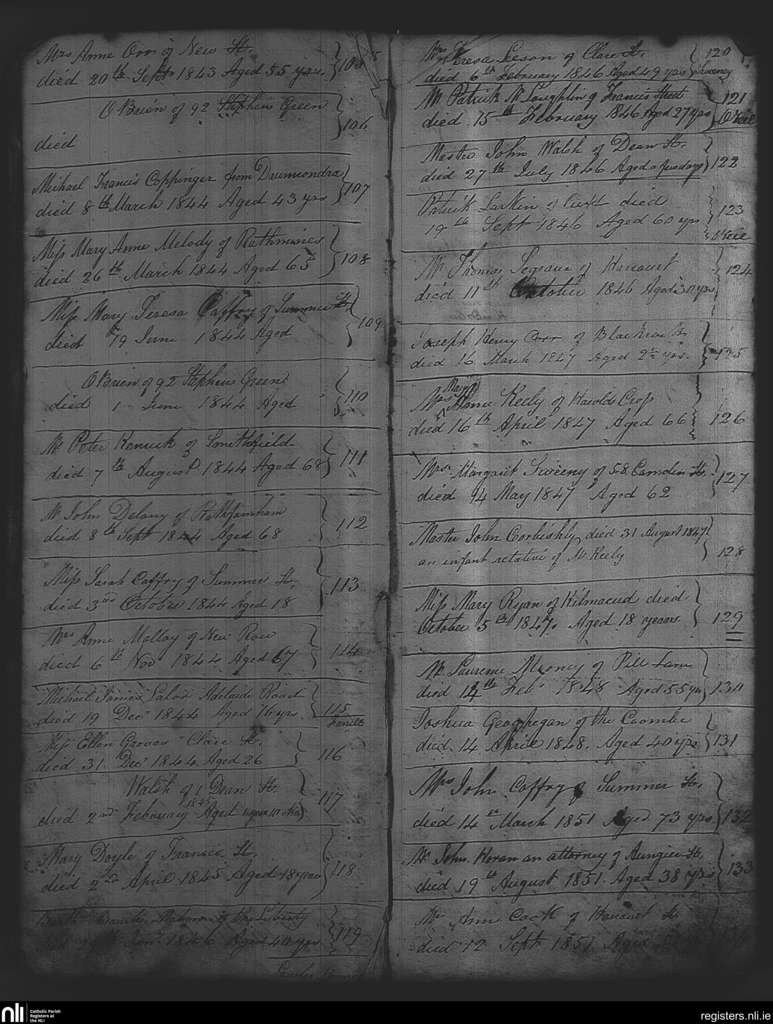 Mrs Anne Orr of New St.
died 20th Sept 1843 Aged 55 yrs 105
O'Brien of 92 Stephens Green
died 106
Michael Francis Coppinger from Drumcondra
died 8th March 1844 Aged 43 yrs 107
Miss Mary Anne Melody of Rathmines
died 26th March 1844 Aged 65 108
Miss Mary Teresa Caffry of Summer St.
died 19 June 1844 Aged 109
O'Brien of 92 Stephens Green
died 1 June 1844 Aged 110
Mr Peter Kenrick of Smithfield
died 7th August 1844 Aged 68 111
Mr John Delany of Rathfarnham
died 8th Sept 1844 Aged 68 112
Miss Sarah Caffry of Summer St.
died 3rd October 1844 Aged 18 113
Mrs Anne Molloy of New Row
died 6th Nov 1844 Aged 67 114
Michael Adelaide Road
died 19 Decr 1844 Aged 76 yrs 115
Miss Ellen Clare St.
died 31 Decr 1844 Aged 26 116
Walsh of 1 Dean St.
died 2nd February 1845 Aged 117
Mary Doyle of Francis St.
died 2nd April 1845 Aged 18 years 118
of the Liberty
1846 Aged 40 yrs 119
Mrs Teresa Leson of Clare St. 120
died 6th February 1846 Aged 49 yrs Sweeny
Mr Patrick McLoughlin of Francis Street 121
died 15th February 1846 Aged 27 yrs
Master John Walsh of Dean St.
died 27th July 1846 Aged 122
Patrick Larkin of died
19th Sept 1846 Aged 60 yrs 123
Mr Thomas Segrave of Harcourt 124
died 11th October 1846 Aged 30 yrs
Joseph Henry Corr of Blackrock
died 16 March 1847 Aged 2 yrs. 125
Mrs Mary Anne Keely of Harolds Cross
died 16th April 1847 Aged 66 126
Mrs Margaret Sweeny of 58 Camden St.
died 14 May 1847 Aged 62 127
Master John Corbishly died 31 August 1847
an infant relative of Mr Keely 128
Miss Mary Ryan of Kilmacud died
October 5th 1847. Aged 18 years 129
Mr Laurence Mooney of Pill Lane
died 14th Feb 1848 Aged 55 yrs 130
Joshua Geoghegan of the Coombe
died 14 April 1848. Aged 40 yrs 131
Mrs John Caffry of Summer St.
died 14th March 1851 Aged 73 yrs 132
Mr John an attorney of Aungier St.
died 19th August 1851 Aged 38 yrs 133
Mrs Ann Cook of Harcourt St.
died 12 Sept 1851 Aged
nli
Catholic Parish
Registers at
the NLI
registers.nli.ie